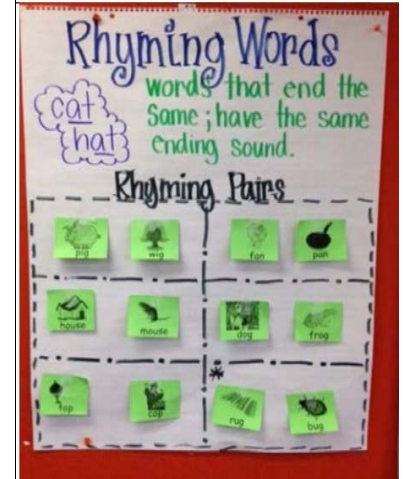 Rhyming Words
words that end the
cat same; have the same
hat ending sound.
Rhyming Pairs
pig wig fan pan
house mouse dog frog
top cop
*
rug bug